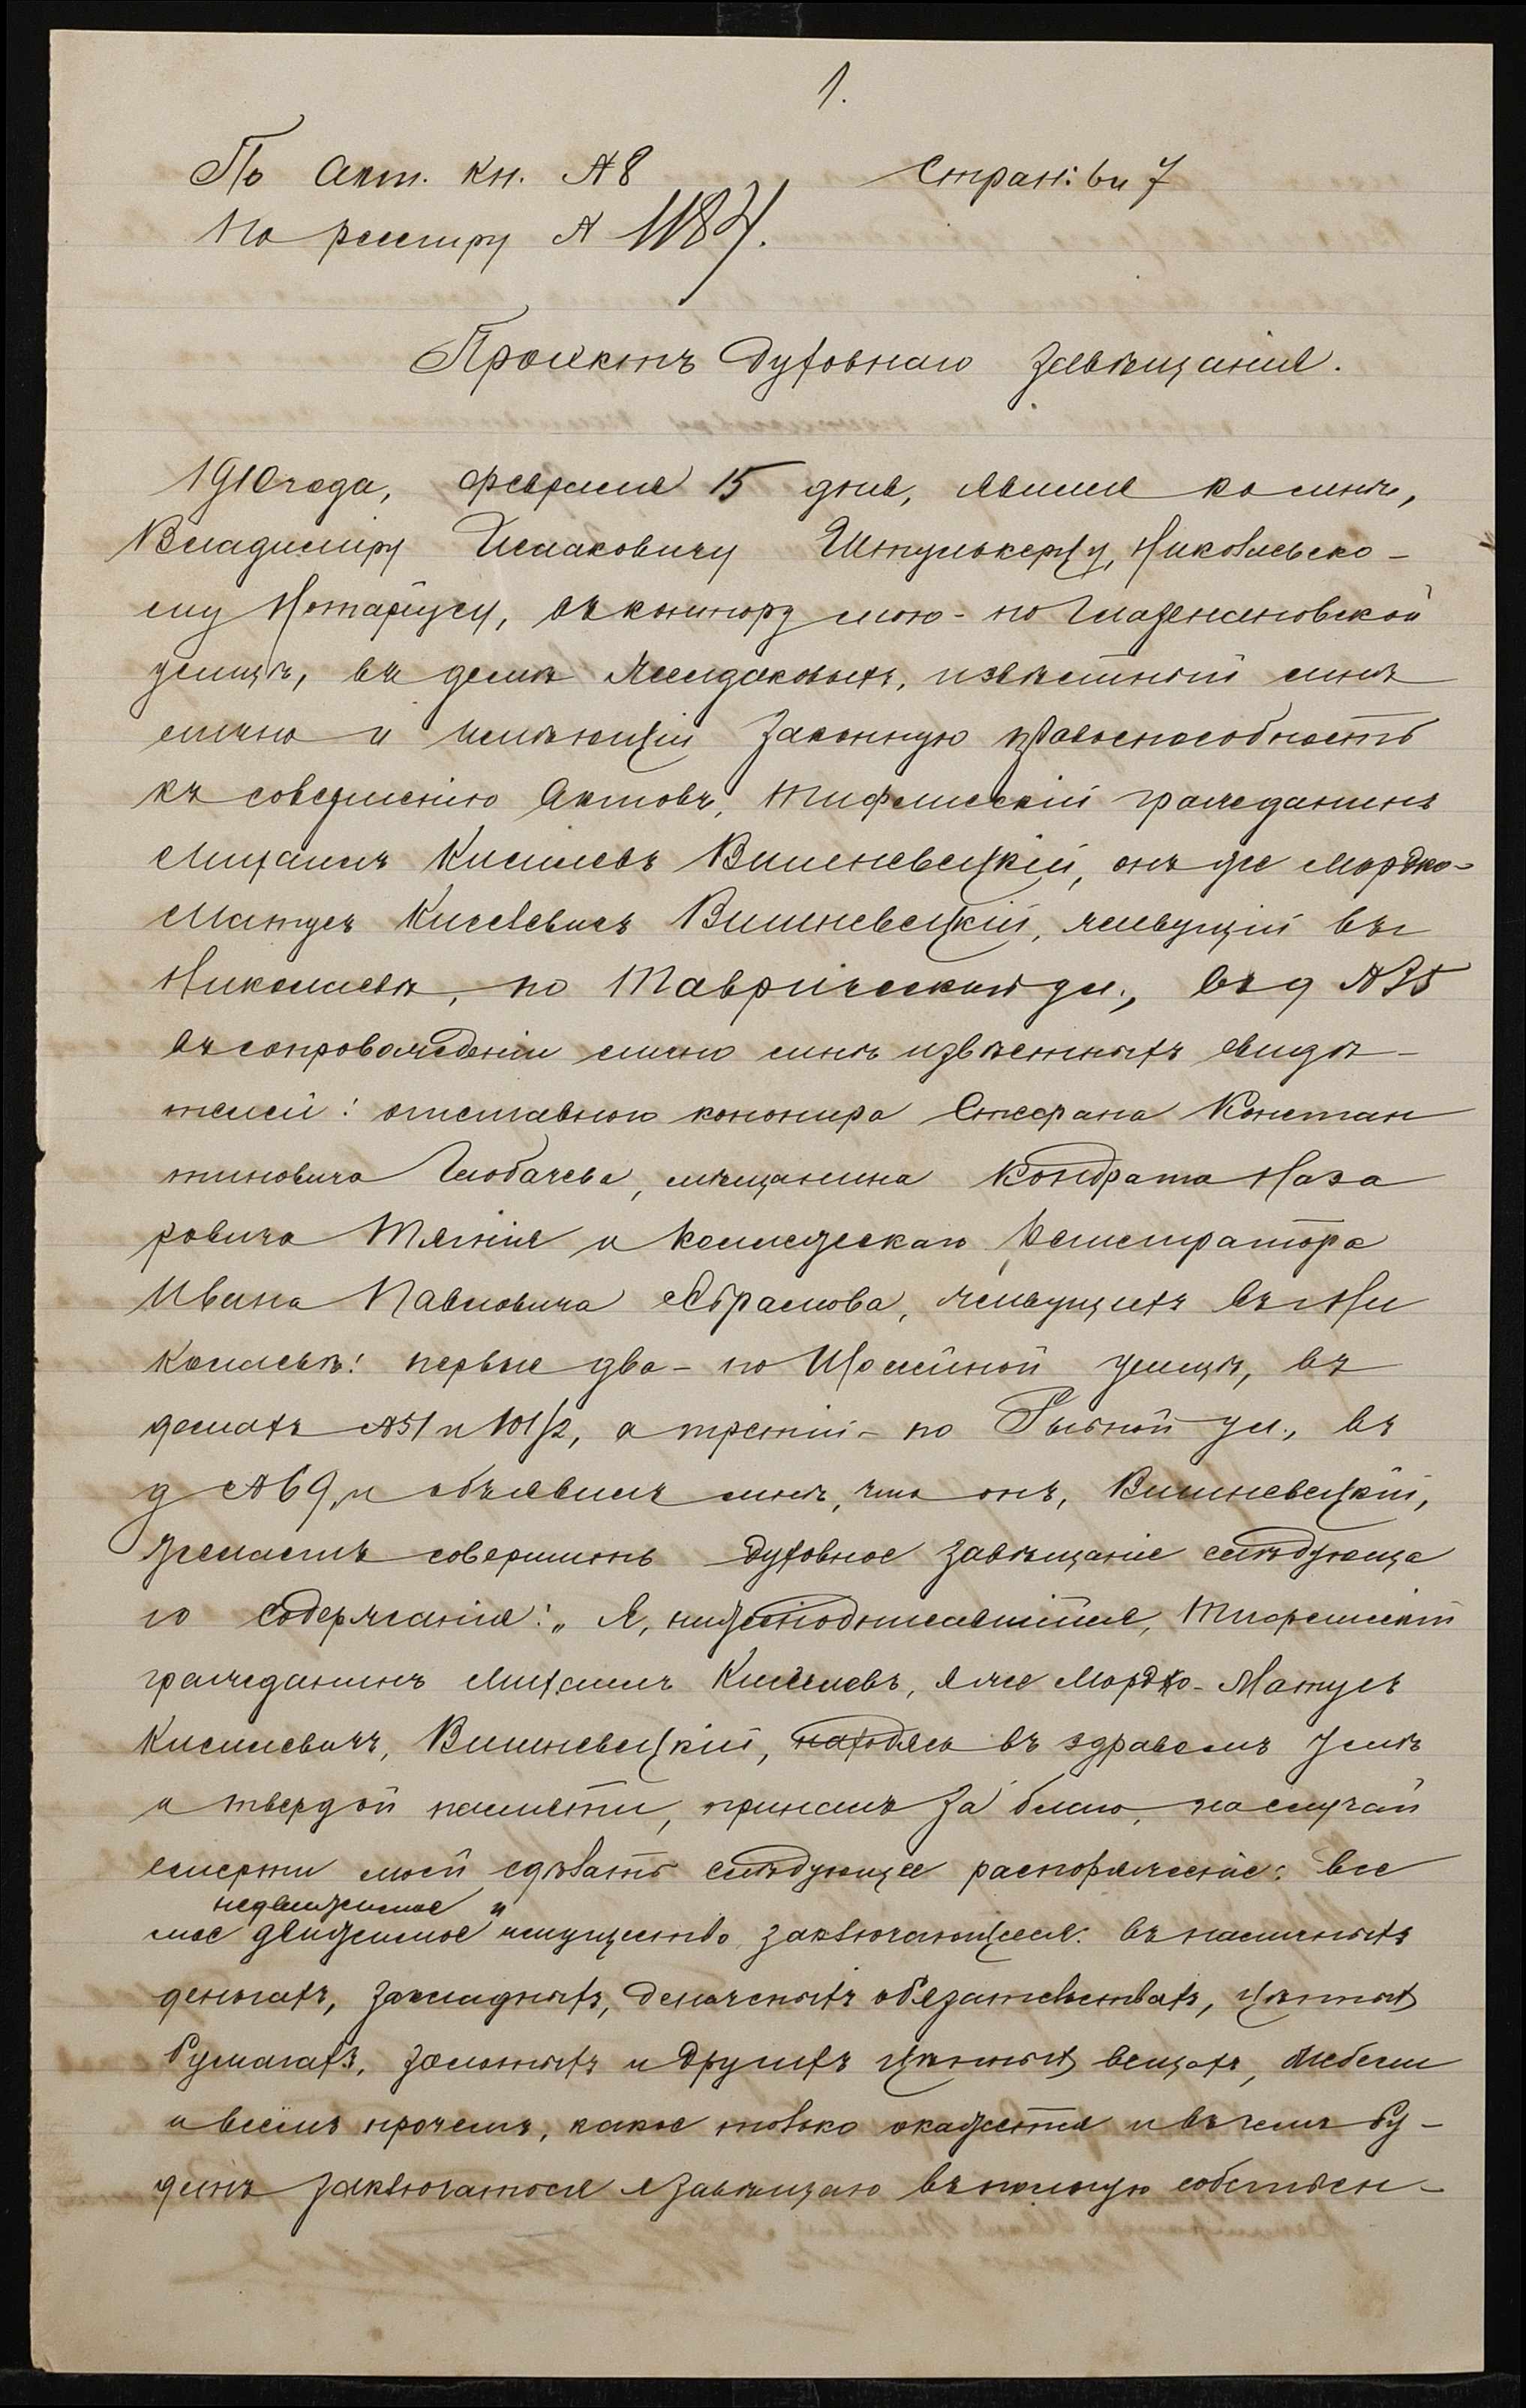 1.
По Акт. кн. №8 Стран: 6 и 7
По реестру № 1184.
Проектъ духовнаго завѣщанія.
1910 года, февраля 15 дня, явился ко мнѣ,
Владиміру Исааковичу Штулькерцу, Николаевско-
му Нотаріусу, въ контору мою - по Глазенаповской
улицѣ, въ домѣ извѣстный мнѣ
лично и имѣющій законную правоспособность
къ совершенію Актовъ, Тифлисскій гражданинъ
Михаилъ Кисилевъ Вишневецкій, онъ же Мордко-
Матусъ Киселевичъ Вишневецкій, живущій въ
Николаевѣ, по Таврической ул., въ д №35
въ сопровожденіи лично мнѣ извѣстныхъ свидѣ-
телей: отставного канонира Стефана Констан
тиновича Глобачева, мѣщанина Кондрата Наза
ровича Тягнія и Коллежскаго Регистратора
Ивана Павловича Абрамова, живущихъ въ Ни
колаевѣ: первые два - по улицѣ, въ
домахъ №51 и 101/2, а третій - по Рыбной ул., въ
д №69, и объявилъ мнѣ, что онъ, Вишневецкій,
желаетъ совершить духовное завѣщаніе слѣдующа
го содержанія: „Я, нижеподписавшійся, Тифлисскій
гражданинъ Михаилъ Кисилевъ, я же Мордко-Матусъ
Кисилевичъ, Вишневецкій, находясь въ здравомъ умѣ
и твердой памяти, призналъ за благо, на случай
смерти моей сдѣлать слѣдующее распоряженіе: все
недвижимое и
мое движимое имущество, заключающееся: въ наличныхъ
деньгахъ, закладныхъ, денежныхъ обязательствахъ, цѣнныхъ
бумагахъ, золотыхъ и другихъ цѣнныхъ вещахъ, мебели
и всемъ прочемъ, какое только окажется и въ чемъ бу-
детъ заключаться я завѣщаю въ полную собствен-